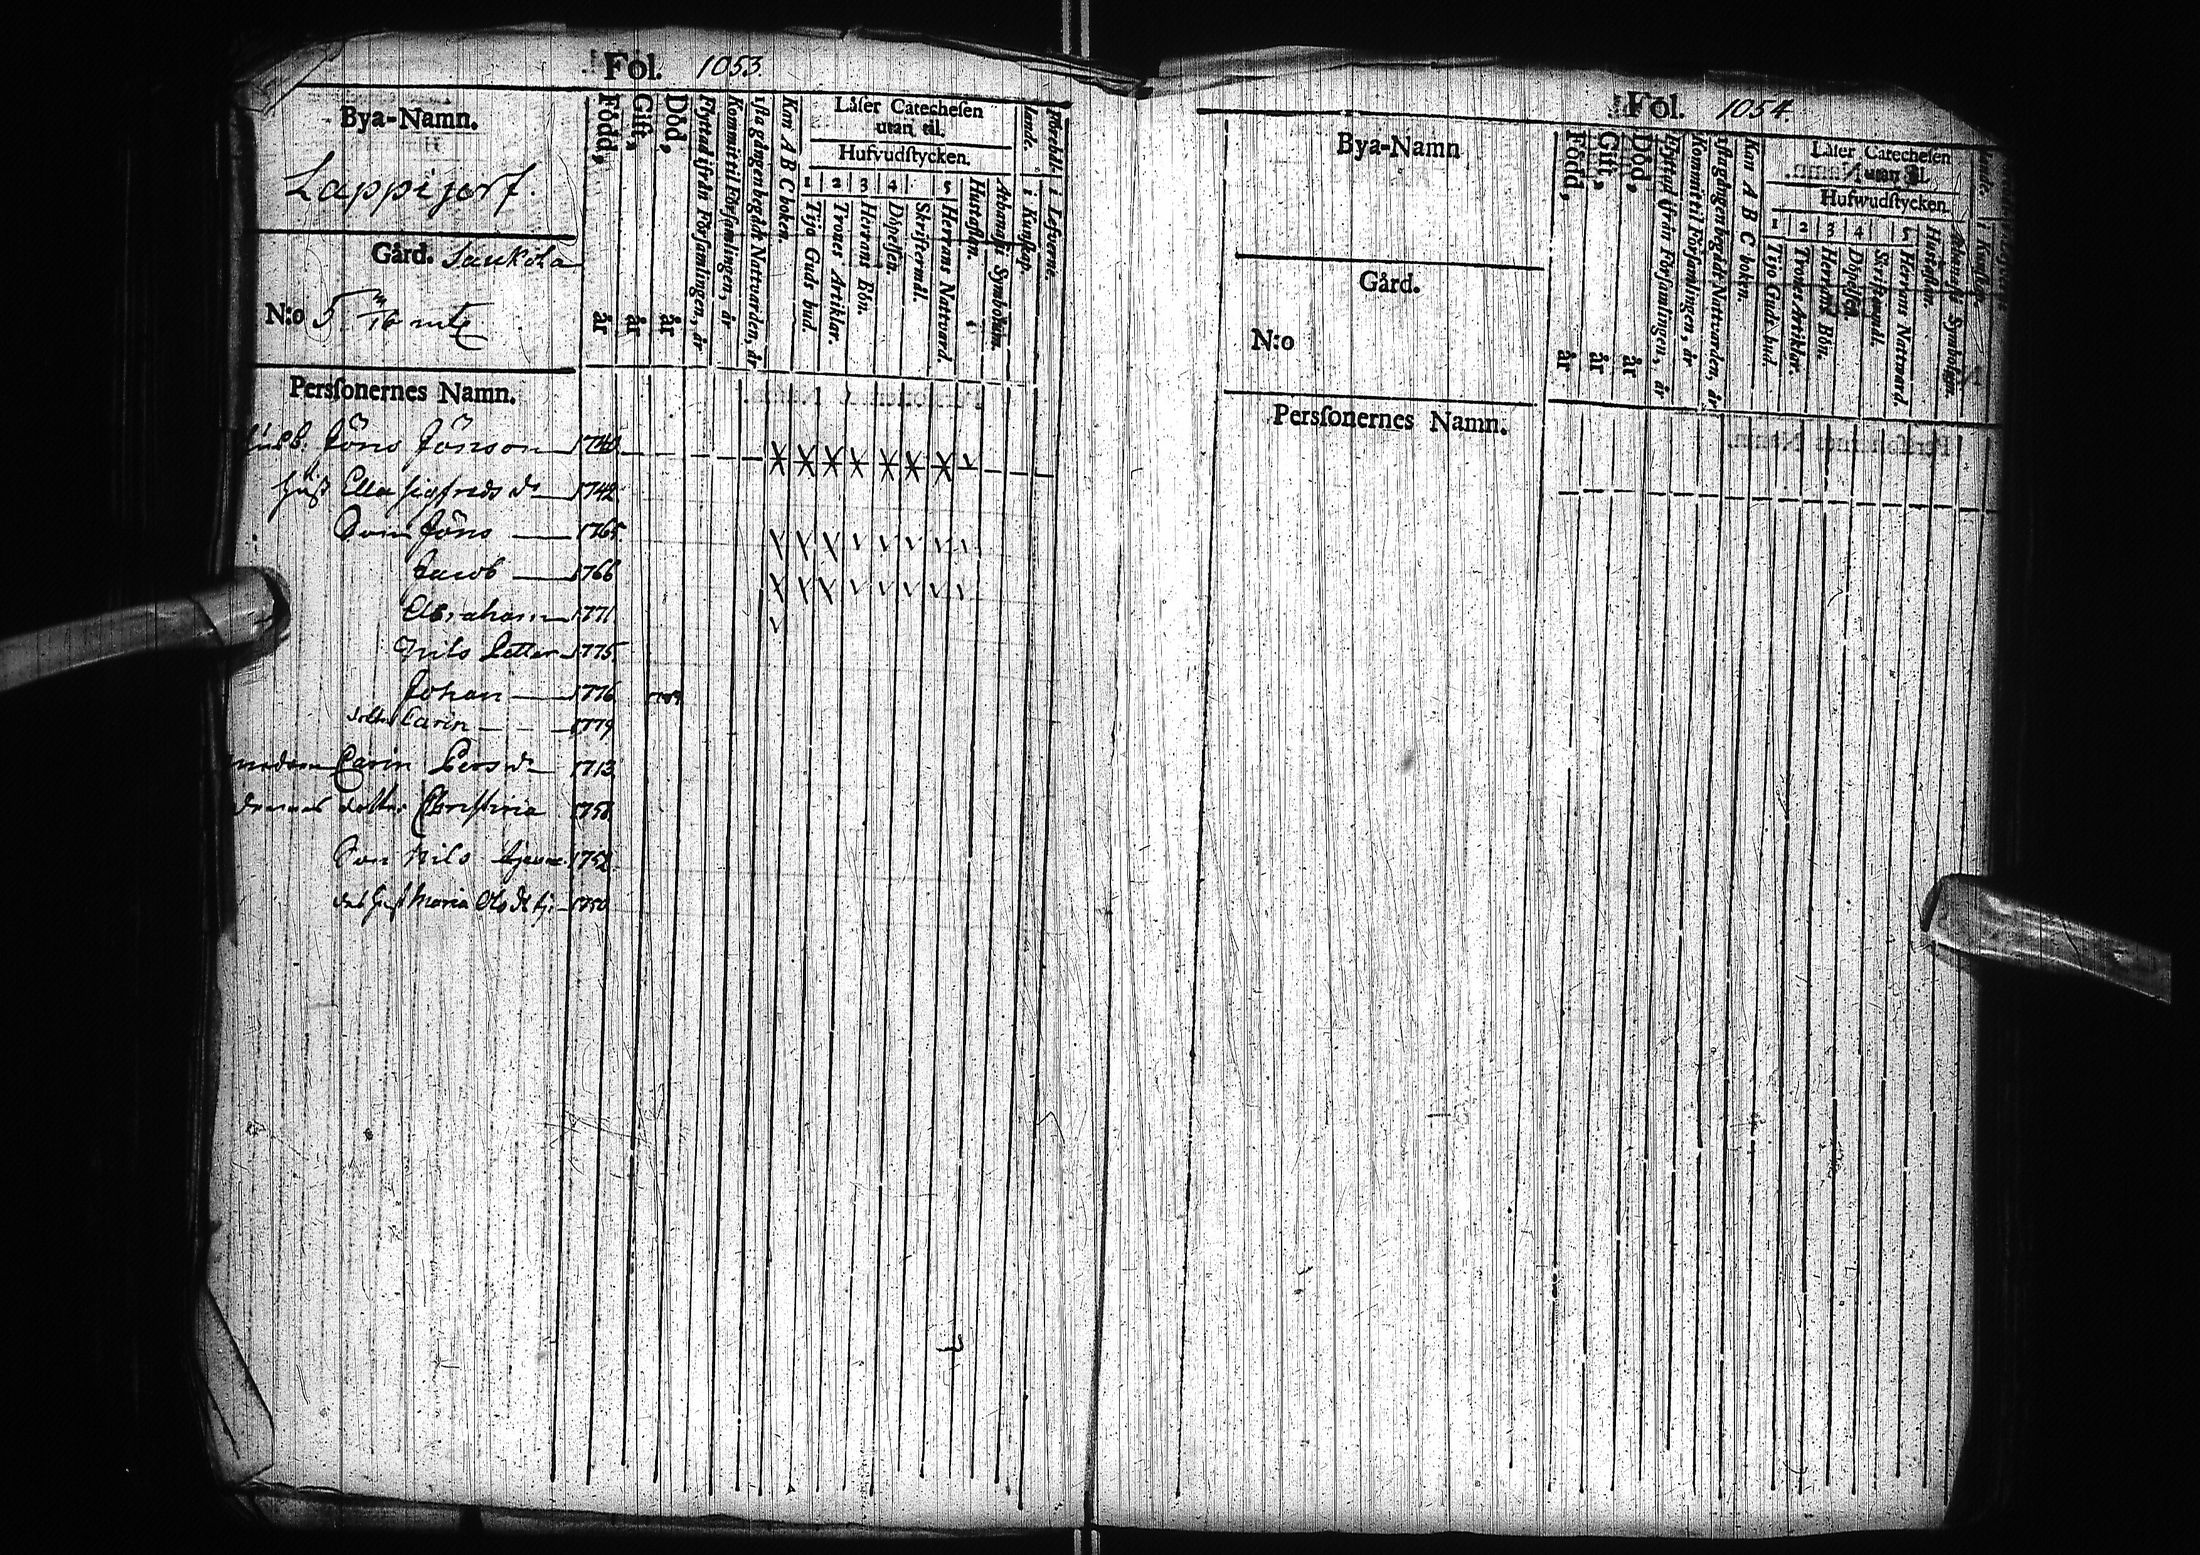 Fol. 1053.
Bya-Namn.
Lappijerf.
Gård. Saukola
N:o 5 3/16 mtl
Född, år
Gift, år
Död, år
Flyttad ifrån Församlingen, år
Kommit til Församlingen, år
1sta gången begådt Nattvarden, år
Kan A B C boken.
Låſer Catecheſen
utan til.
Hufvudſtycken.
1 2 3 4 5
Tijo Guds bud
Trones Artiklar.
Herrans Bön.
Döpelſen.
Skriftermål.
Herrans Nattvard.
Huſtaflan.
Athanaſii Symbolum.
i Kunſkap.
i Lefverne.
Perſſonernes Namn.
Jöns Jönson 1740
Hust Ella Sigfreds dr 1742
Son Jöns 1765
Jacob 1766
Abraham 1771
Nils Petter 1775
Johan 1776
dotter Carin 1779
modren Carin Pers dr 1713
dennes dotter Christina 1758
Son Nils 1752
Hust Maria 1750
Fol. 1054.
Bya-Namn
Gård.
N:o
Född, år
Gift, år
Död, år
Flyttad ifrån Församlingen, år
Kommit til Församlingen, år
1sta gången begådt Nattvarden, år
Kan A B C boken.
Låſer Catecheſen
utan til.
Hufwudſtycken.
1 2 3 4 5
Tijo Guds bud.
Trones Artiklar.
Herrans Bön.
Döpelſen.
Skriftermål.
Herrans Nattward.
Huſtaflan.
Athanaſii Symbolum.
Perſſonernes Namn.